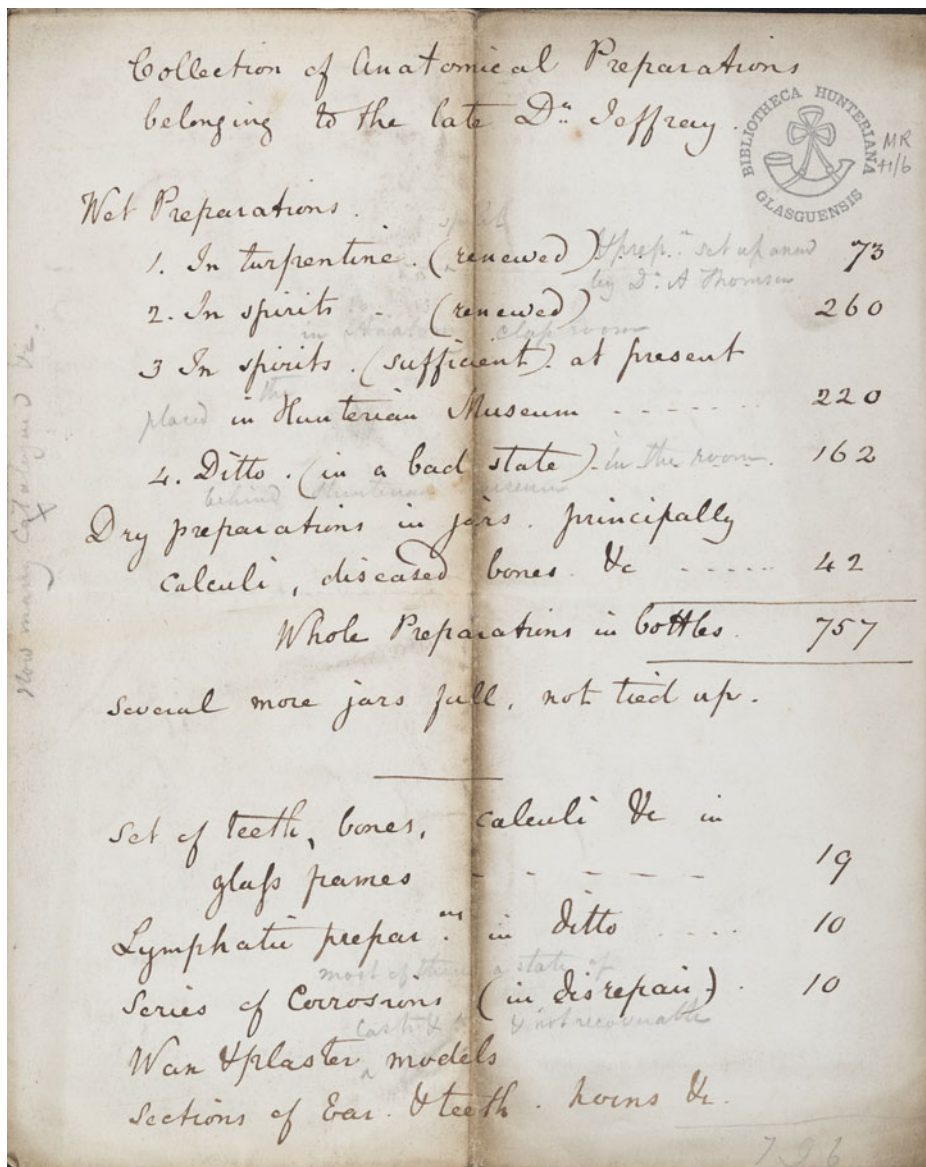 Collection of Anatomical Preparations
belonging to the late Dr. Jeffray.
BIBLIOTHECA HUNTERIANA
GLASGUENSIS
MR
41/6
Wet Preparations.
1. In turpentine. (renewed) & prepns. set up anew 73
by Dr. A Thomson
2. In spirits - (renewed) 260
in class room
3 In spirits. (sufficient). at present
the
placed in Hunterian Museum - - - - - - 220
4. Ditto. (in a bad state). in the room. 162
behind Hunterian Museum
Dry preparations in jars. principally
calculi, diseased bones. &c - - - - - 42
Whole Preparations in bottles. 757
Several more jars full, not tied up.
How many Catalogued &c.
Set of teeth, bones, calculi &c in
glass frames - - - - - - 19
Lymphatic prepar.ns in ditto - - - - 10
most of them a state of
Series of Corrosions (in disrepair). 10
Casts & & not recoverable
Wax & plaster models
Sections of Ear. & teeth. horns &c.
796